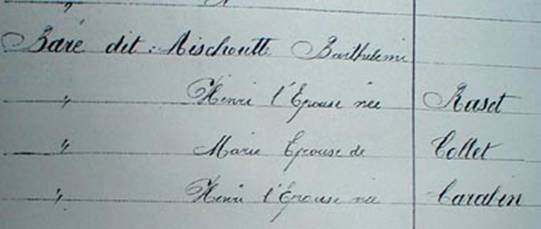 Baré dit: Mischoutte Barthelemi
" Henri l'Epouse née Raset
" Marie Epouse de Collet
" Henri l'Épouse née